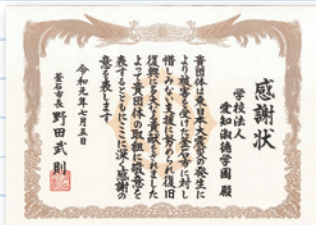 感謝状
学校法人
愛知淑徳学園 殿
貴団体は東日本大震災の発生に
より被害を受けた釜石市に対し
惜しみない支援に努められ復旧
復興に多大な貢献をされました
よって貴団体の取組に敬意を
表するとともにここに深く感謝の
意を表します
令和元年七月五日
釜石市長 野田武則